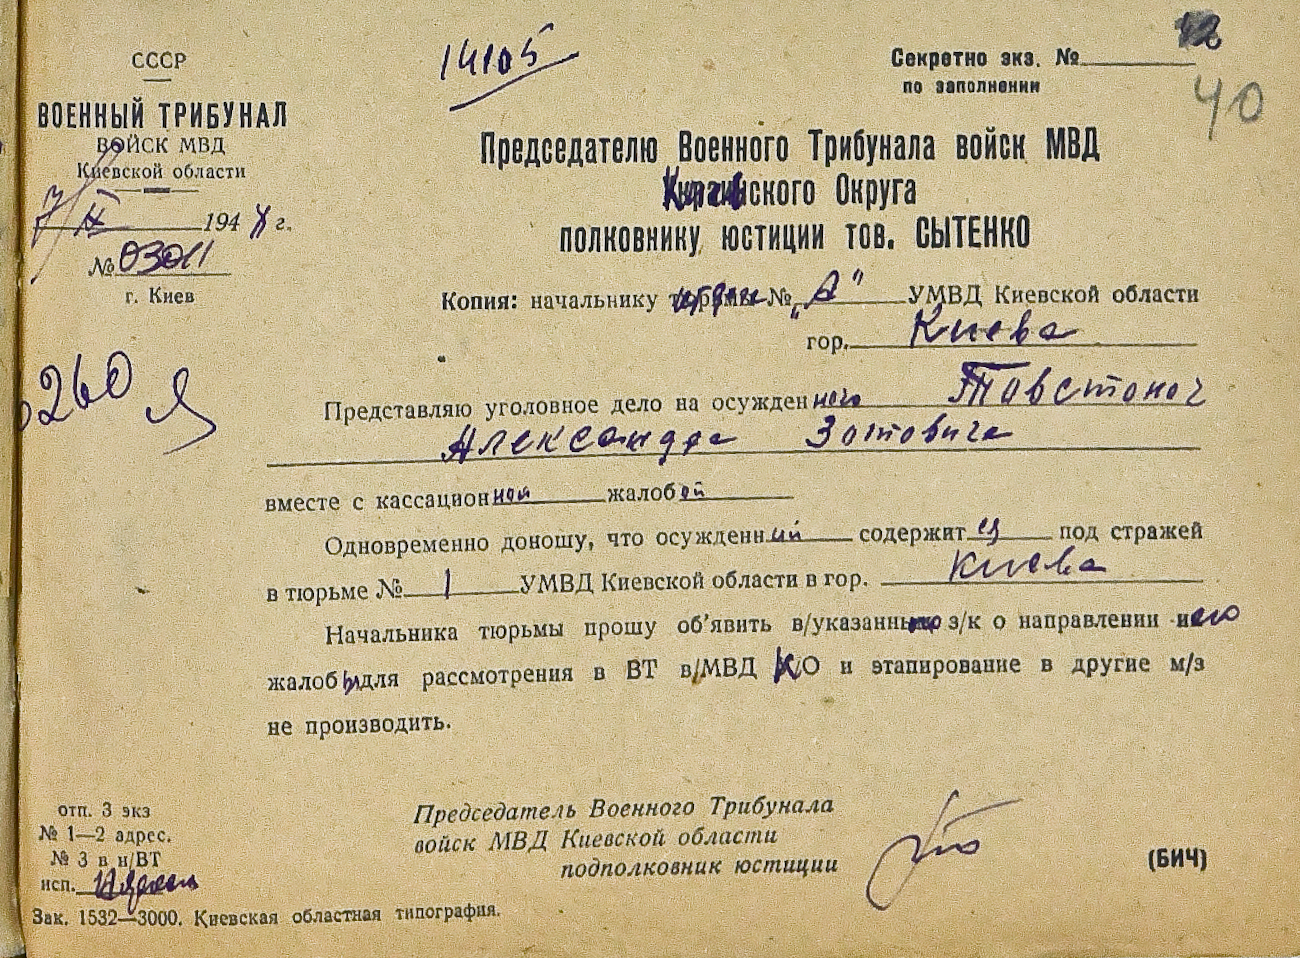 СССР
ВОЕННЫЙ ТРИБУНАЛ
ВОЙСК МВД
Киевской области
194 г.
№ 03011
г. Киев
14105
Секретно экз. №
по заполнении
40
Председателю Военного Трибунала войск МВД
Киевского Округа
полковнику юстиции тов. СЫТЕНКО
Копия: начальнику № „А" УМВД Киевской области
гор. Киева
260
Представляю уголовное дело на осужденного Товстоног
Александра Зотовича
вместе с кассационной жалобой
Одновременно доношу, что осужденный содержится под стражей
в тюрьме № 1 УМВД Киевской области в гор. Киева
Начальника тюрьмы прошу об'явить в/указанному з/к о направлении его
жалобы для рассмотрения в ВТ в/МВД К/О и этапирование в другие м/з
не производить.
отп. 3 экз
№ 1—2 адрес.
№ 3 в н/ВТ
исп.
Председатель Военного Трибунала
войск МВД Киевской области
подполковник юстиции
(БИЧ)
Зак. 1532—3000. Киевская областная типография.